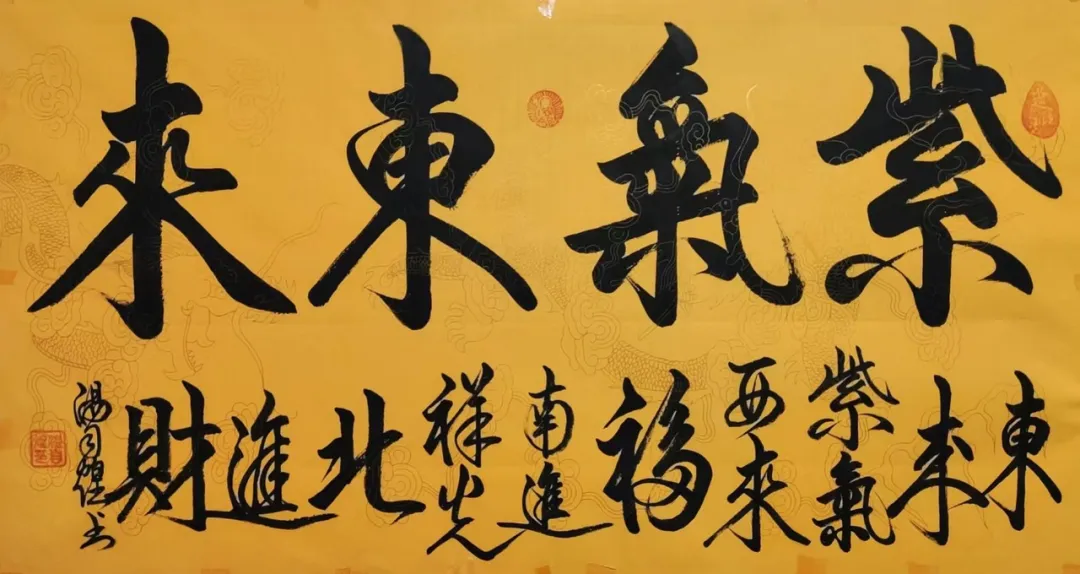 紫氣東來
東來紫氣西來福南進祥光北進財
湯 书